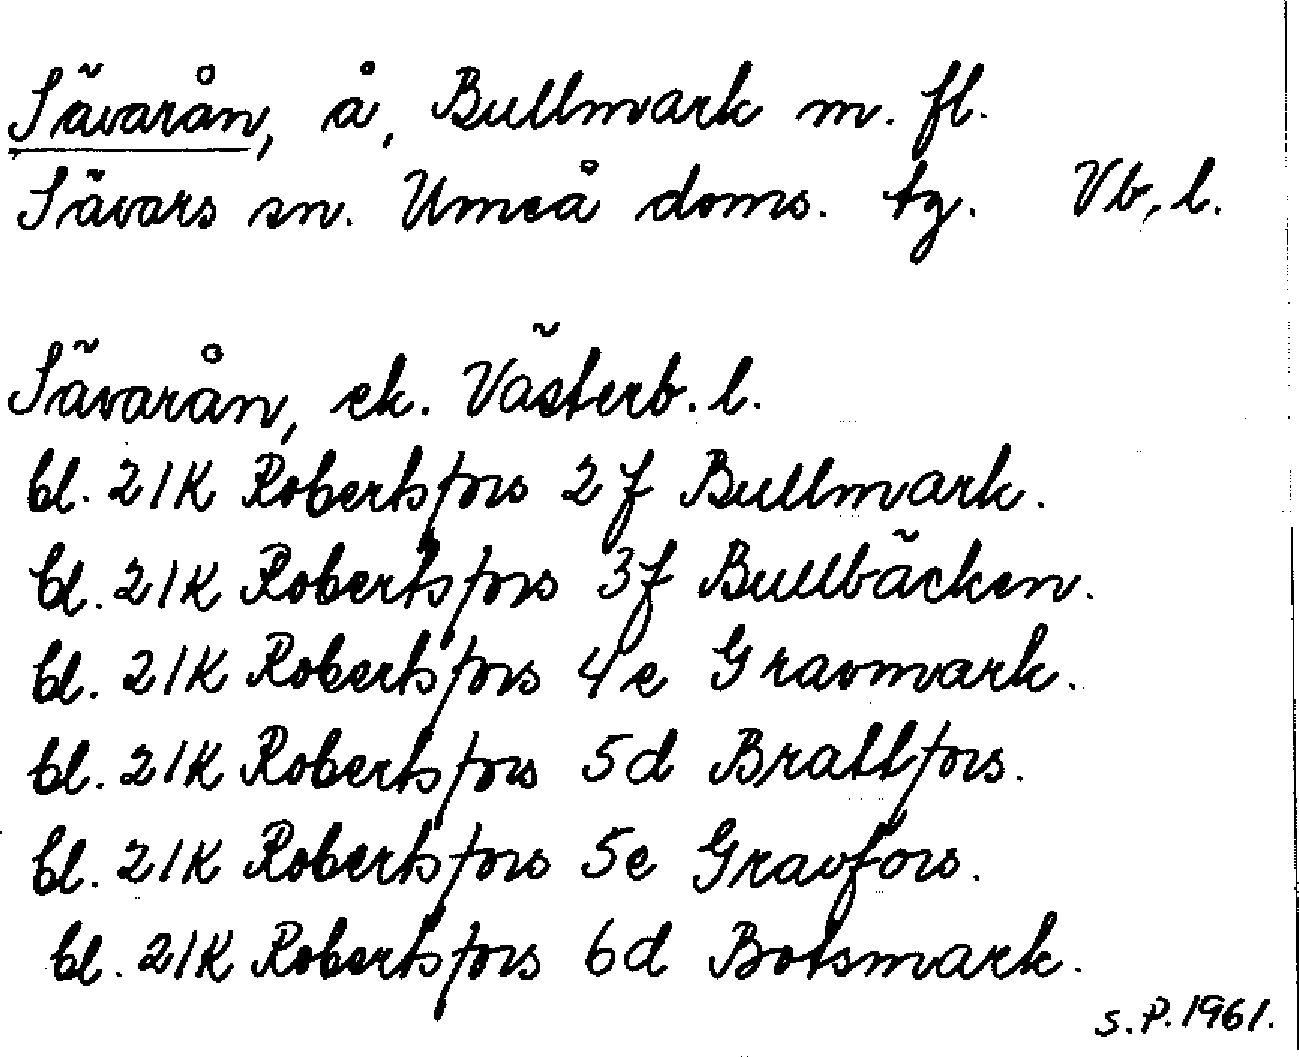 Sävarån, å, Bullmark m. fl.
Sävars sn. Umeå doms. tg. Vb, l.
Sävarån, ek. Västerb. l.
bl. 21K Robertsfors 2f Bullmark.
bl. 21K Robertsfors 3f Bullbäcken.
bl. 21K Robertsfors 4e Gravmark.
bl. 21K Robertsfors 5d Brattfors.
bl. 21K Robertsfors 5e Gravfors.
bl. 21K Robertsfors 6d Botsmark.
S.P. 1961.